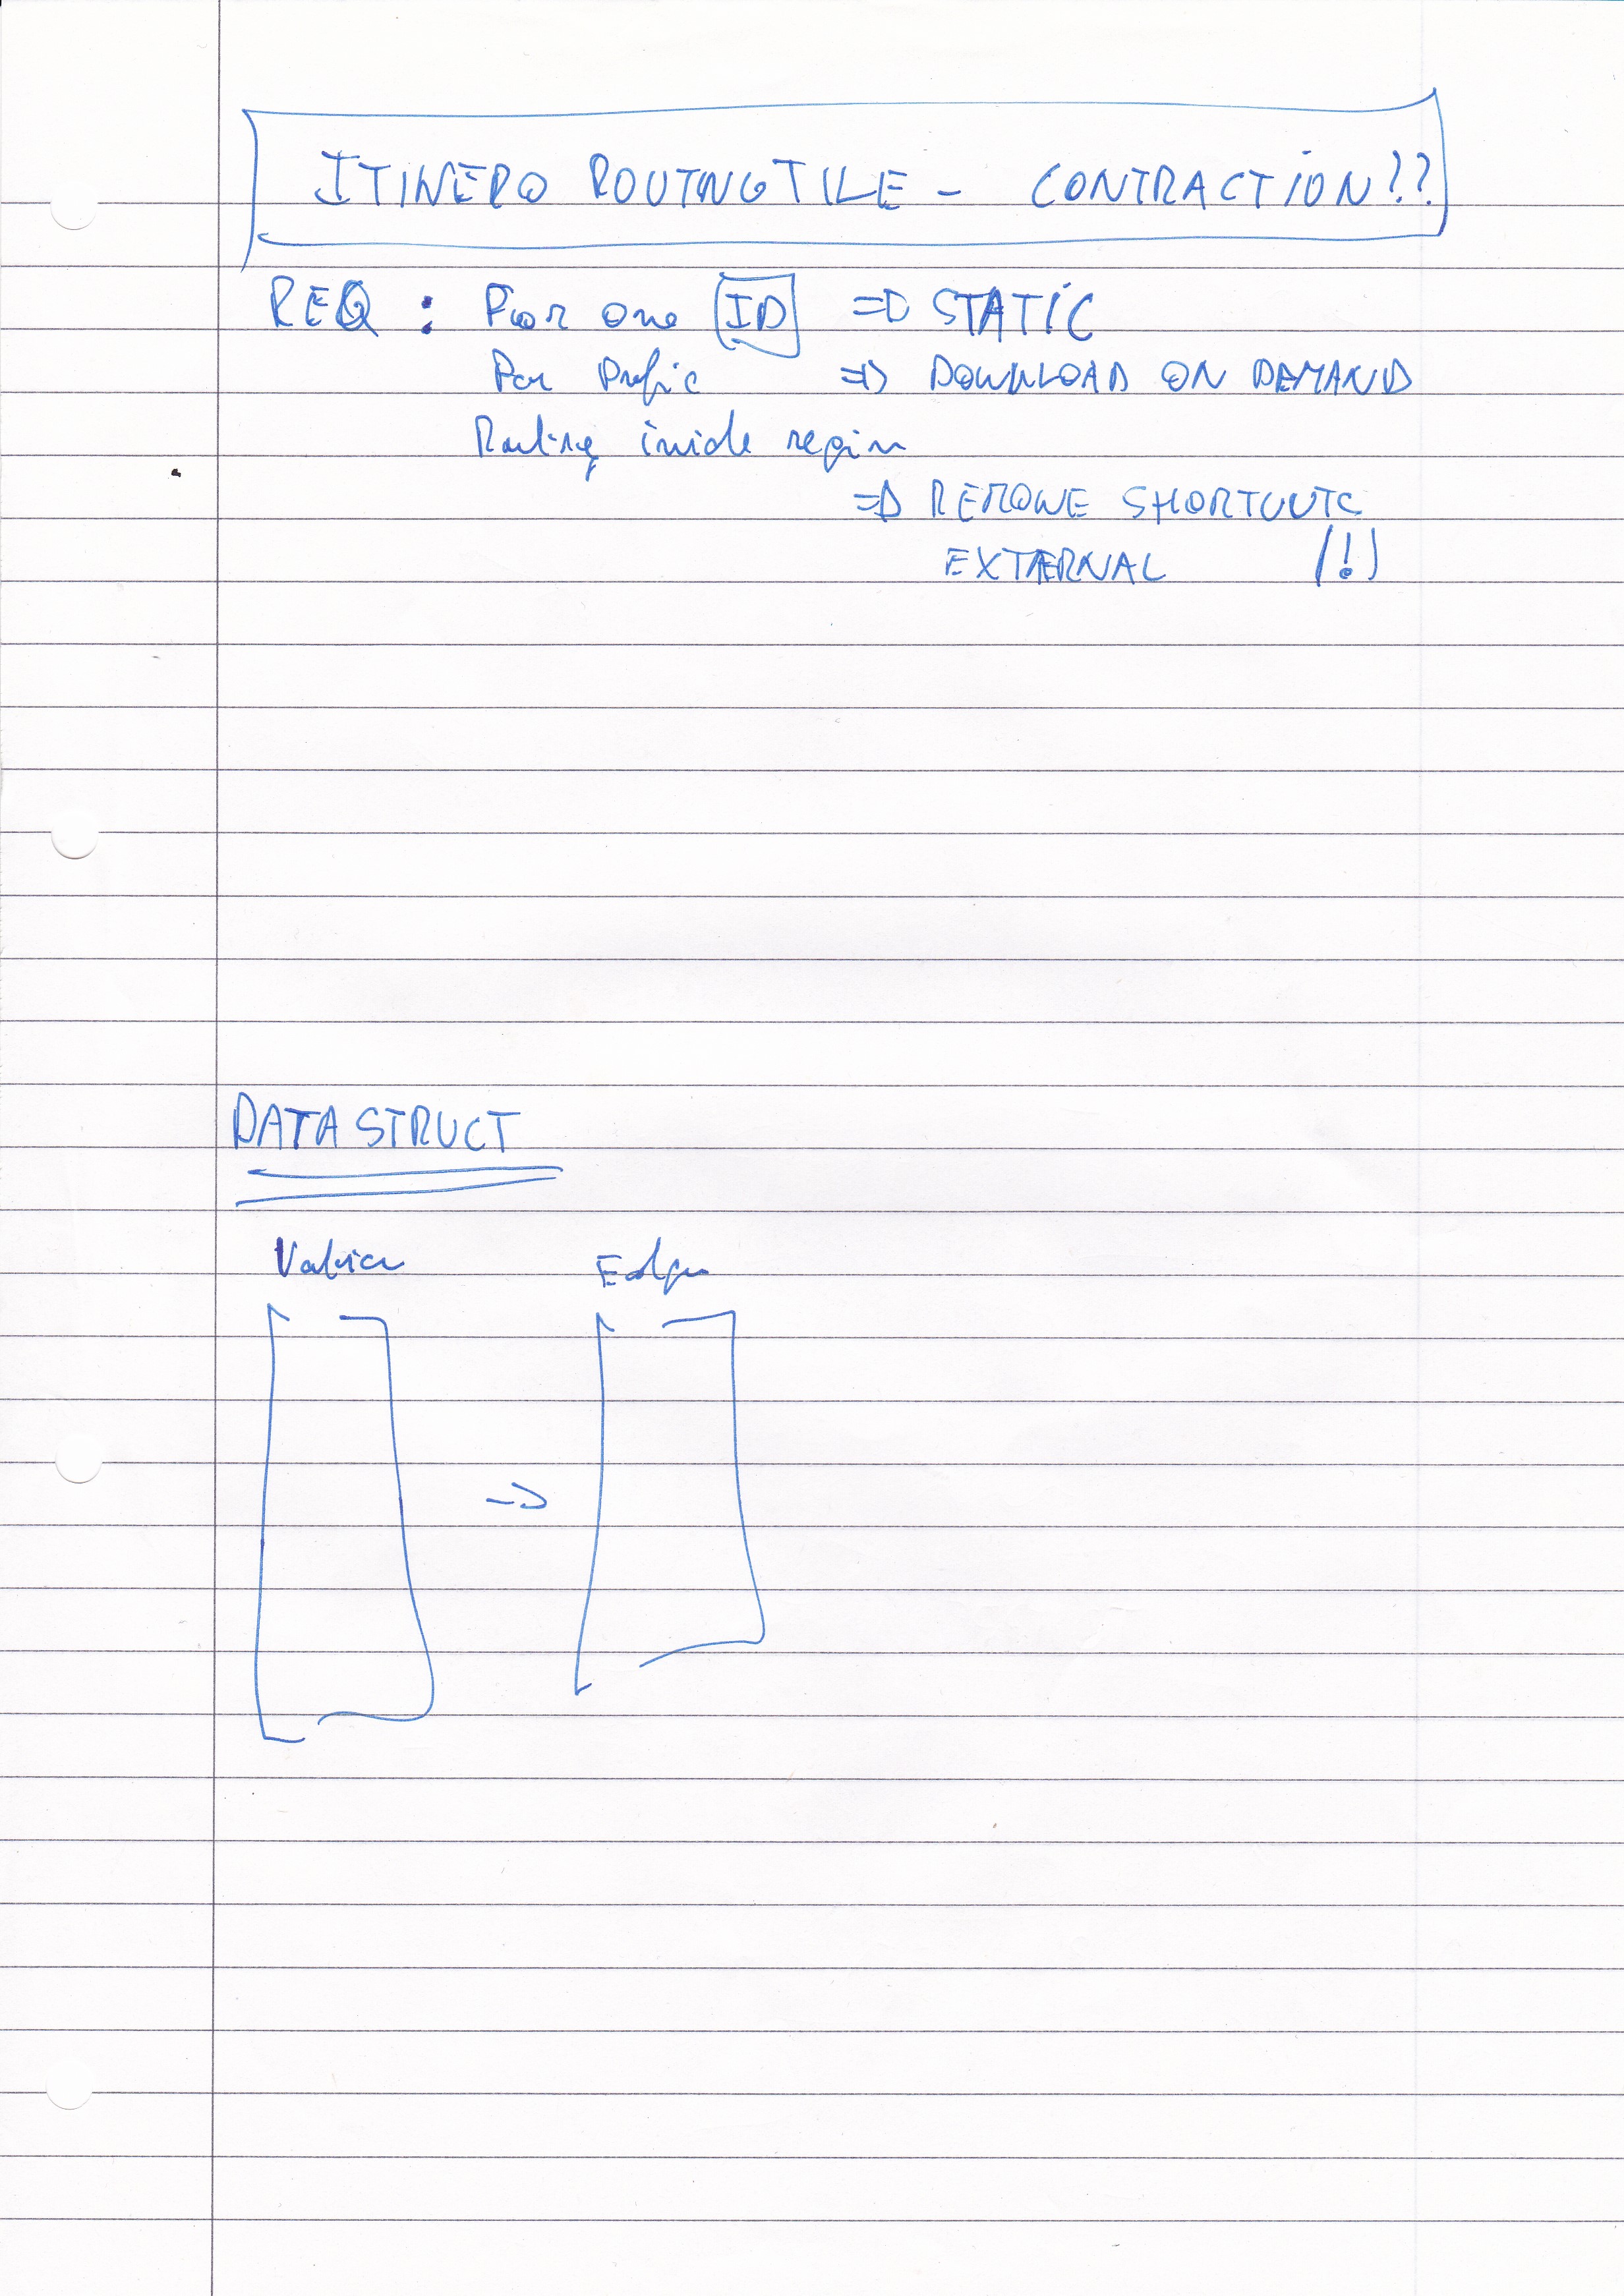 ITINERO ROUTINGTILE - CONTRACTION??
REQ : For one ID => STATIC
Per => DOWNLOAD ON DEMAND
Routing inside region
=> REMOVE SHORTCUTS
EXTERNAL (!)
DATA STRUCT
Vertices Edges
->